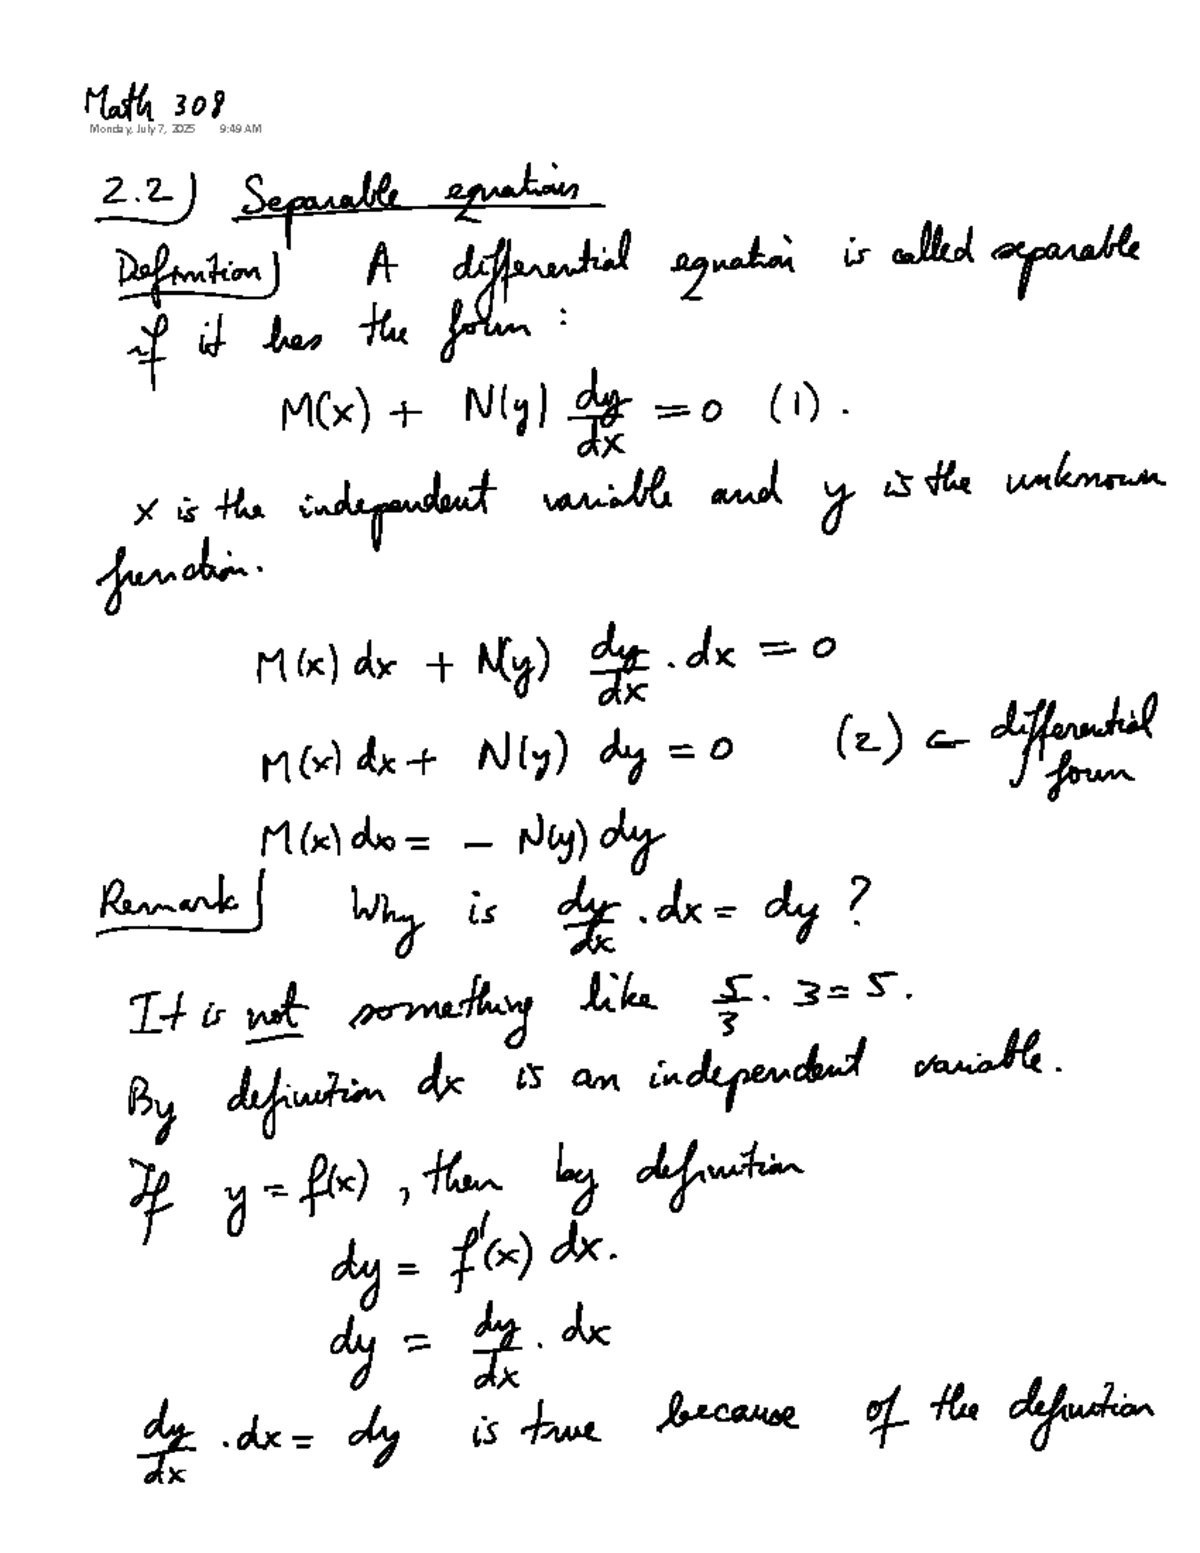 Math 308
Monday, July 7, 2025 9:49 AM
2.2) Separable equations
Definition) A differential equation is called separable
if it has the form :
M(x) + N(y) dy/dx = 0 (1).
x is the independent variable and y is the unknown
function.
M(x) dx + N(y) dy/dx . dx = 0
M(x) dx + N(y) dy = 0 (2) ← differential
form
M(x) dx = - N(y) dy
Remark) Why is dy/dx . dx = dy ?
It is not something like 5/3 . 3 = 5.
By definition dx is an independent variable.
If y = f(x), then by definition
dy = f'(x) dx.
dy = dy/dx . dx
dy/dx . dx = dy is true because of the definition